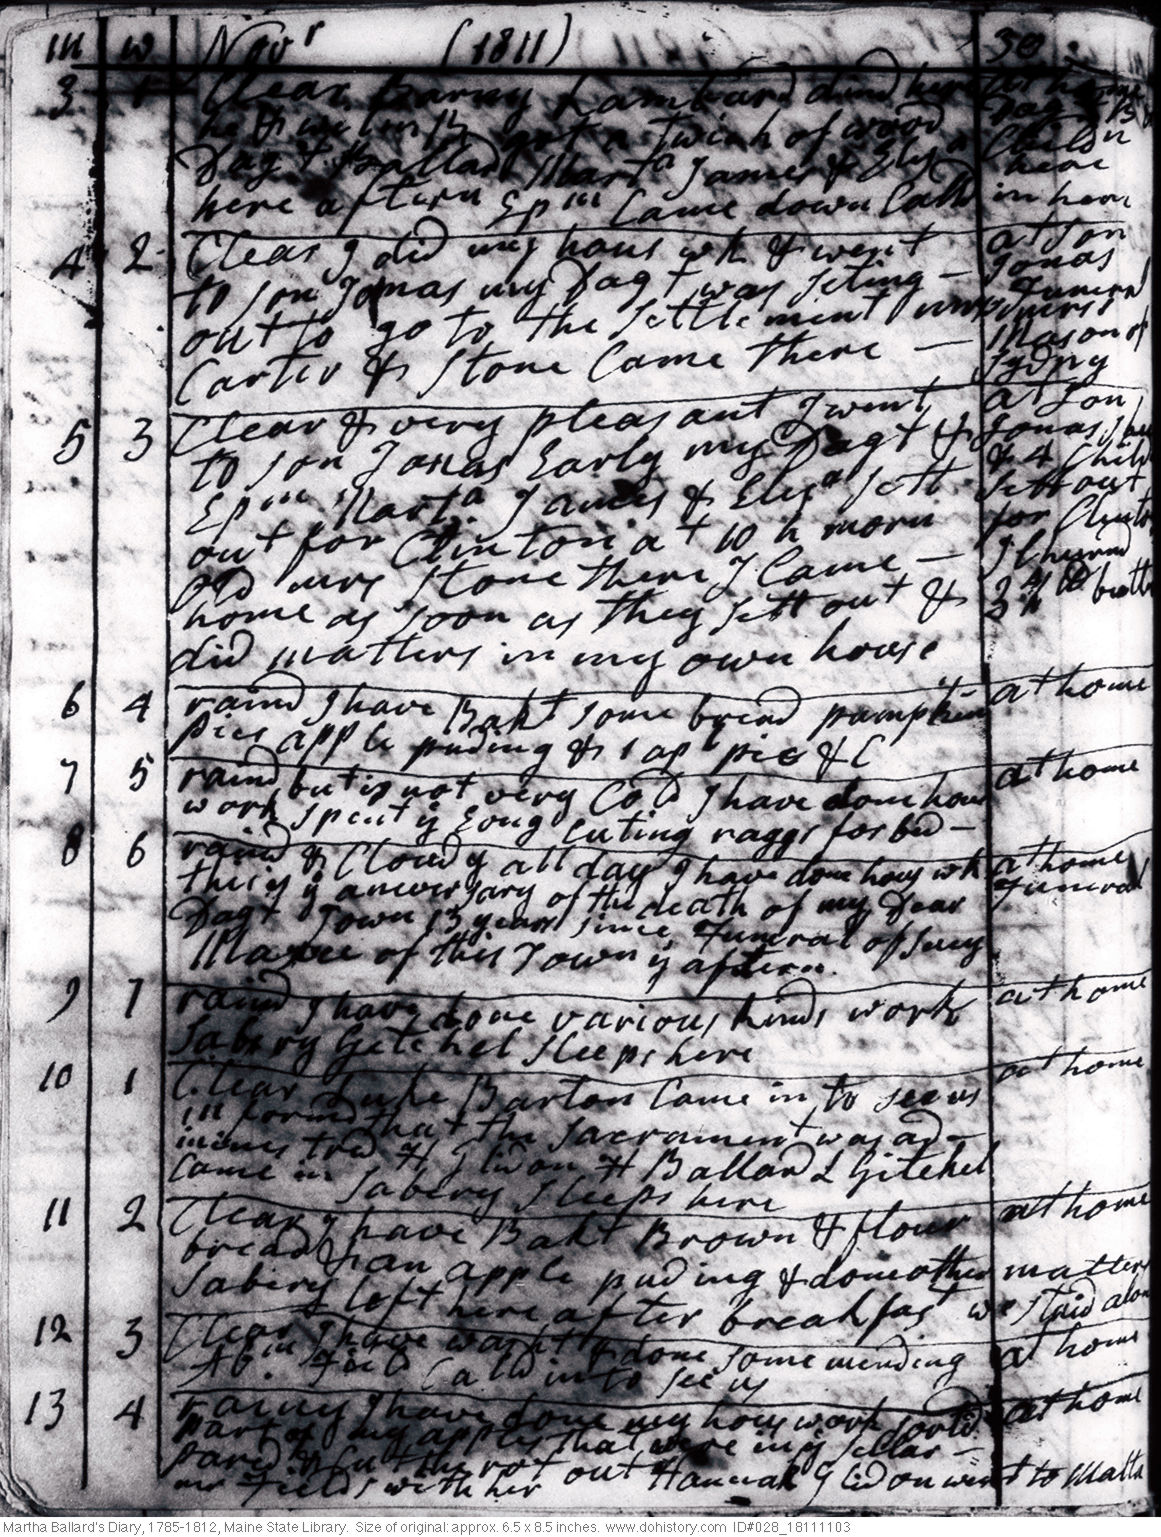 m w Novr (1811) 30
3 1 Clear Barny Lambard dind here at home
he & we Got a Twich of wood Dagt B
Dagt Ballard Marta James & Elyza Childn
here aftern Epm Came down Calld in here here
4 2 Clear I did my hous wk & went at son
to son Jonas my Dagt was seting - Jonas
out to go to the settlement mrs Funeral
Carter & Stone Came there - Mason of
Sydny
5 3 Clear & very pleasant I went at son
to son Jonas Early my Dagt & Jonas
Epm Marta James & Elyza sett & 4 Child
out for Clinton at 10 h morn sett out for
old mrs Stone there I Came - I Churnd
home as soon as they sett out &
did matters in my own house
6 4 raind I have Bakt some bread pumpkin at home
pies apple puding & 1 apl pie &C
7 5 raind but is not very Cold I have done hous at home
work spent ye Evng Cuting raggs for bed -
8 6 raind & Clowdy all day I have done hous wk at home
this is ye aneversary of the death of my Dear Funeral
Dagt Town 13 years since Funeral of
of this Town ys aftern.
9 7 raind I have done various kinds work at home
Sabery Getchel sleeps here
10 1 Clear Luke Barton Came in to see us at home
informd that the sacrament was ad-
minestred H Glidon H Ballard & Gitchel
Came in Sabery sleeps here
11 2 Clear I have Bakt Brown & flour at home
bread & an apple puding & done other matters
Sabery left here after breakfast we staid alon
12 3 Clear I have washt & done some mending at home
Ab. Field Calld in to see us
13 4 rainy I have done my hous work sortid at home
part of my apples that were in ye sellar -
pared & Cut the rot out Hannah Glidon went to Matta
mr Fields with her
Martha Ballard's Diary, 1785-1812, Maine State Library. Size of original: approx. 6.5 x 8.5 inches. www.dohistory.com ID#028_18111103